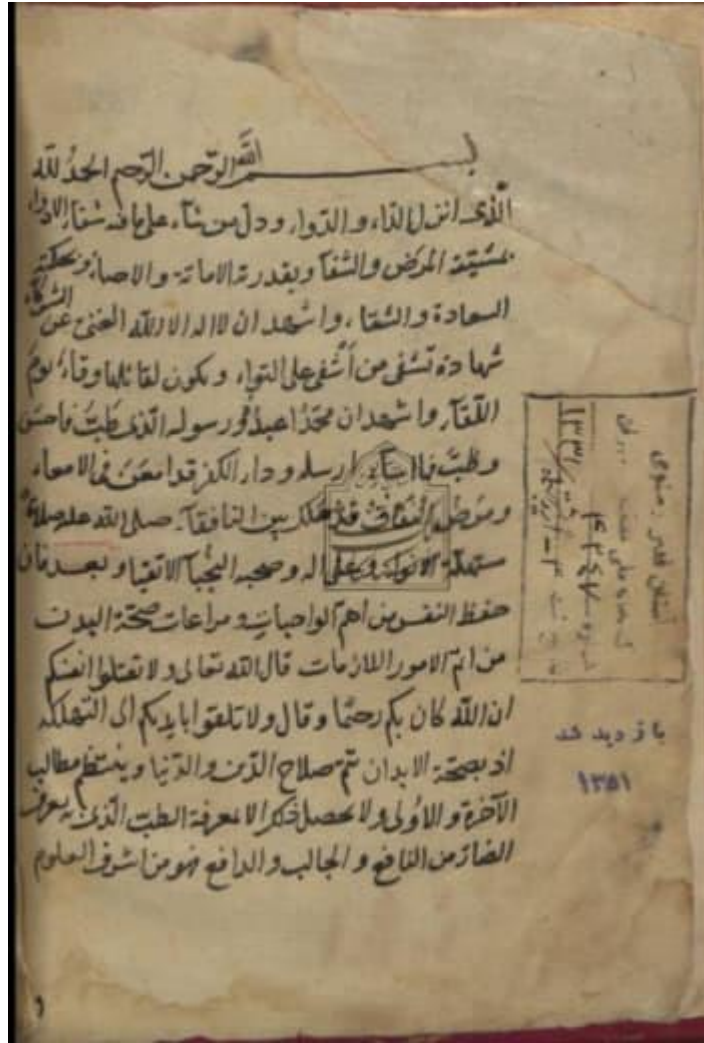 بسم الله الرحمن الرحيم الحمد لله
الذی انزل الداء و الدواء و دل من شاء علی ما فیه شفاء الادواء
بمشیته المرض والشفآ وبقدرته الاماتة والاحیاء وبحکمته
السعادة والشقاء واشهد ان لا اله الا الله الغنی عن الشرکاء
شهادة تشفی من أشفی علی التواء و یکون لقائلها وقاء یوم
اللقآء واشهد ان محمدا عبده ورسوله الذی طب فاحسن
وطب ارسله و دار الکفر قد امعن فی الامعاء
ومرض النفاق قد هلك بین النافقآء صلی الله علیه صلاة
الانواء وعلی اله وصحبه النجبآ الاتقیاء وبعد فان
حفظ النفس من اهم الواجبات ومراعات صحة البدن
من اتم الامور اللازمات قال الله تعالی ولا تقتلوا انفسکم
ان الله کان بکم رحیما وقال ولا تلقوا بایدیکم الی التهلکه
اذ بصحة الابدان تتم صلاح الدین والدنیا وینتظم مطالب
الآخرة والاولی ولا یحصل ذلك الا بمعرفة الطب الذی به یعرف
الضار من النافع والجالب والدافع فهو من اشرف العلوم
آستان قدس رضوی
کتابخانه ملی ملك
شماره ۴۲۶۷
بازدید شد
۱۳۵۱
۱